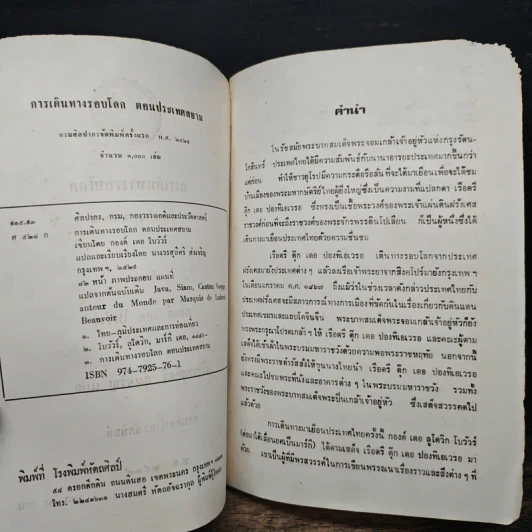 การเดินทางรอบโลก ตอนประเทศสยาม
กรมศิลปากรจัดพิมพ์ครั้งแรก พ.ศ. ๒๕๒๕
จำนวน ๑,๐๐๐ เล่ม
ศิลปากร, กรม, กองวรรณคดีและประวัติศาสตร์
การเดินทางรอบโลก ตอนประเทศสยาม
เขียนโดย กองต์ เดอ โบวัวร์
แปลและเรียบเรียงโดย
กรุงเทพฯ, ๒๕๒๕
๘๒ หน้า ภาพประกอบ แผนที่
แปลจากต้นฉบับเดิม Java, Siam, Canton Voyage
autour du Monde par Marquis de Ludovic
Beauvoir
๑. ไทย–ภูมิประเทศและการท่องเที่ยว
๒. โบวัวร์, ลูโดวิก, มาร์กี เดอ,
๓. การเดินทางรอบโลก ตอนประเทศสยาม
ISBN 974-7925-76-1
พิมพ์ที่ โรงพิมพ์หัตถศิลป์
คำนำ
ในรัชสมัยพระบาทสมเด็จพระจอมเกล้าเจ้าอยู่หัวแห่งกรุงรัตน-
โกสินทร์ ประเทศไทยได้มีความสัมพันธ์กับนานาอารยะประเทศมากขึ้นกว่า
แต่ก่อน ทำให้ชาวยุโรปมีความกระตือรือล้นที่จะได้มาเยือนเพื่อจะได้ชม
บ้านเมืองของพระมหากษัตริย์ไทยผู้ยิ่งใหญ่ซึ่งเป็นความงามที่แปลกตา เรือตรี
ดุ๊ก เดอ ปองทิเอเวรอ ซึ่งทรงเป็นเชื้อพระวงศ์ของพระเจ้าแผ่นดินฝรั่งเศส
ราชวงศ์ก่อนที่จะถึงราชวงศ์ของพระจักรพรรดินโปเลียน ก็เป็นผู้หนึ่งซึ่งได้
เดินทางมาเยือนประเทศไทยด้วยความชื่นชม
เรือตรี ดุ๊ก เดอ ปองทิเอเวรอ เดินทางรอบโลกจากประเทศ
ฝรั่งเศสมายังประเทศต่าง ๆ แล้วลงเรือเจ้าพระยาจากสิงคโปร์มายังกรุงเทพ ฯ
ในเดือนมกราคม ค.ศ. ๑๘๖๗ ถึงแม้ว่าในช่วงเวลาดังกล่าวประเทศไทยกับ
ประเทศฝรั่งเศสจะมีสภาวการณ์ทางการเมืองที่ขัดกันในเรื่องเกี่ยวกับดินแดน
ประเทศเขมรและแถบโคจินจีน พระบาทสมเด็จพระจอมเกล้าเจ้าอยู่หัวก็ยัง
ทรงพระกรุณาโปรดเกล้า ฯ ให้ เรือตรี ดุ๊ก เดอ ปองทิเอเวรอ และคณะผู้ตาม
เสด็จได้เข้าเฝ้าในพระบรมมหาราชวังด้วยความพอพระราชหฤทัย นอกจากนี้
ยังทรงมีพระราชดำรัสสั่งให้ขุนนางไทยนำ เรือตรี ดุ๊ก เดอ ปองทิเอเวรอ
และคณะไปชมพระที่นั่งและอาคารต่าง ๆ ในพระบรมมหาราชวัง รวมทั้ง
พระราชวังของพระบาทสมเด็จพระปิ่นเกล้าเจ้าอยู่หัว ซึ่งเสด็จสวรรคตไป
แล้วด้วย
การเดินทางมาเยือนประเทศไทยครั้งนี้ กองต์ เดอ ลูโดวิก โบวัวร์
(ต่อมาได้เลื่อนยศเป็นมาร์กี) ได้ตามเสด็จ เรือตรี ดุ๊ก เดอ ปองทิเอเวรอ มา
ด้วย เขาเป็นผู้ที่มีพรสวรรค์ในการเขียนพรรณนาเรื่องราวและสิ่งต่าง ๆ ที่